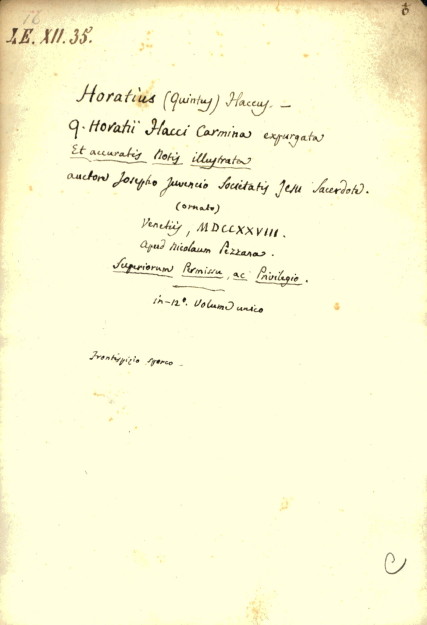 I.E. XII. 35.
Horatius (Quintus) Flaccus. —
Q. Horatii Flacci Carmina expurgata
Et accuratis Notis illustrata
auctore Josepho Juvencio Societatis Jesu Sacerdote.
(ornato)
Venetiis, MDCCXXVIII.
Apud Nicolaum Pezzana.
Superiorum Permissu, ac Privilegio.
in-12°. Volume unico
Frontispizio sporco —
C